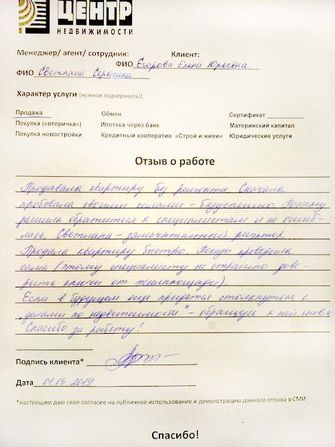 ЦЕНТР
НЕДВИЖИМОСТИ
Менеджер/ агент/ сотрудник: Клиент:
ФИО Егорова Елена Юрьевна
ФИО Светлана
Характер услуги (нужное подчеркнуть):
Продажа Обмен Сертификат
Покупка («вторичка») Ипотека через банк Материнский капитал
Покупка новостройки Кредитный кооператив «Строй и живи» Юридические услуги
Отзыв о работе
Продавала квартиру без ремонта. Сначала
пробовала своими силами - безуспешно. Потому
решила обратиться к специалистам и не ошиб-
лась. Светлана - замечательный риэлтор.
Продала квартиру быстро. Показы проводила
сама (этому специалисту не страшно дове-
рить ключи от жилплощади).
Если в будущем еще придется столкнуться с
"делами по недвижимости" - обращусь к ней снова.
Спасибо за работу!
Подпись клиента*
Дата 2019
*настоящим даю свое согласие на публичное использование и демонстрацию данного отзыва в СМИ.
Спасибо!